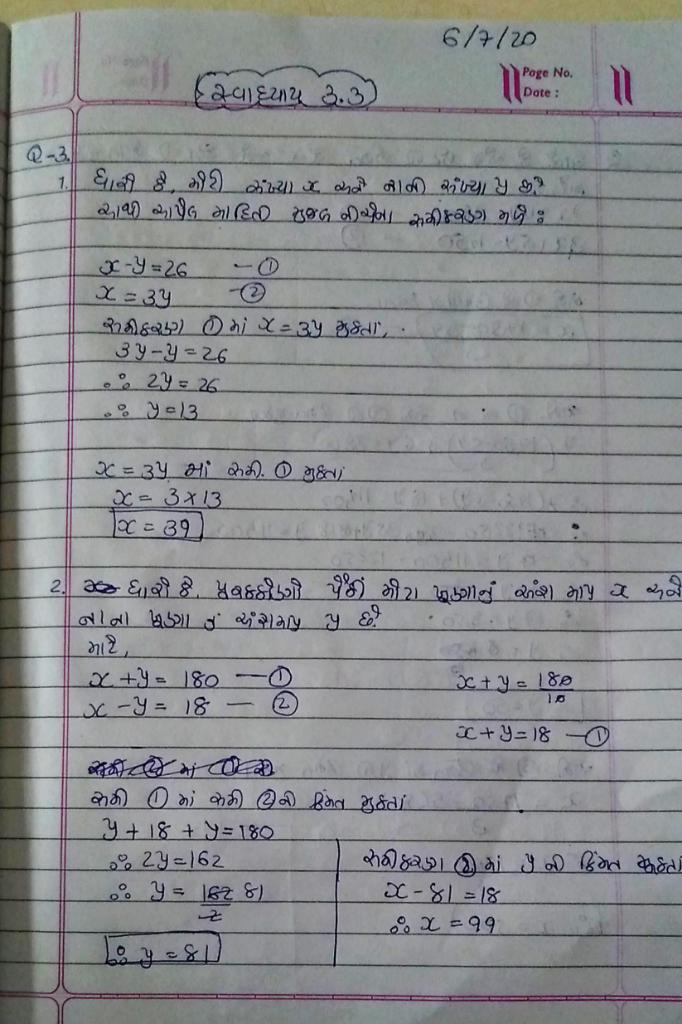 6/7/20
Page No.
Date :
સ્વાધ્યાય 3.3
Q-3.
1. ધારો કે, મોટી સંખ્યા x અને નાની સંખ્યા y છે.
આથી આપેલ માહિતી મુજબ નીચેના સમીકરણ મળે :
x-y=26 —①
x = 3y —②
સમીકરણ ① માં x = 3y મુકતાં,
3y-y=26
∴ 2y = 26
∴ y=13
x = 3y માં સમી. ① મુકતાં
x = 3×13
x = 39
2. ધારો કે, પૂરકકોણની પૈકી મોટા ખૂણાનું અંશ માપ x અને
નાના ખૂણા નું અંશમાપ y છે.
માટે,
x+y= 180 —①
x-y= 18 — ②
x+y = 180
10
x+y=18 —①
સમી ① માં સમી ②ની કિંમત મુકતાં
y+18+y=180
∴ 2y=162
∴ y = 162 81
2
∴ y = 81
સમીકરણ ② માં y ની કિંમત મુકતાં
x-81=18
∴ x = 99